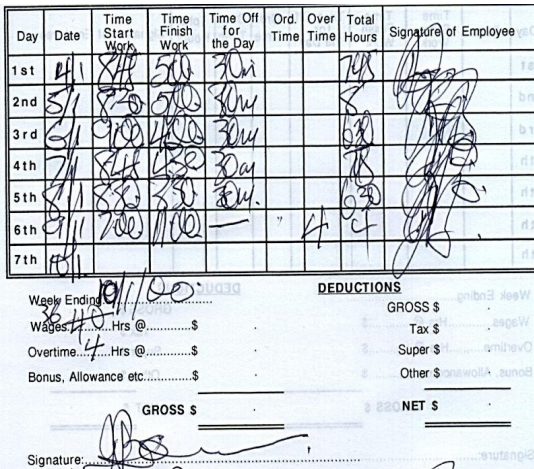 Day Date Time Start Work Time Finish Work Time Off for the Day Ord. Time Over Time Total Hours Signature of Employee
1st 4/1 845 500 30m 745
2nd 5/1 830 500 30m 8
3rd 6/1 900 400 30m 630
4th 7/1 845 430 30m
5th 8/1 830 330 30m. 630
6th 9/1 700 1100 — 4 4
7th 10/1.
Week Ending 10/1/00 DEDUCTIONS
36 40
Wages Hrs @ $ GROSS $
Tax $
Overtime 4 Hrs @ $ Super $
Bonus, Allowance etc. $ Other $
GROSS $ NET $
Signature: